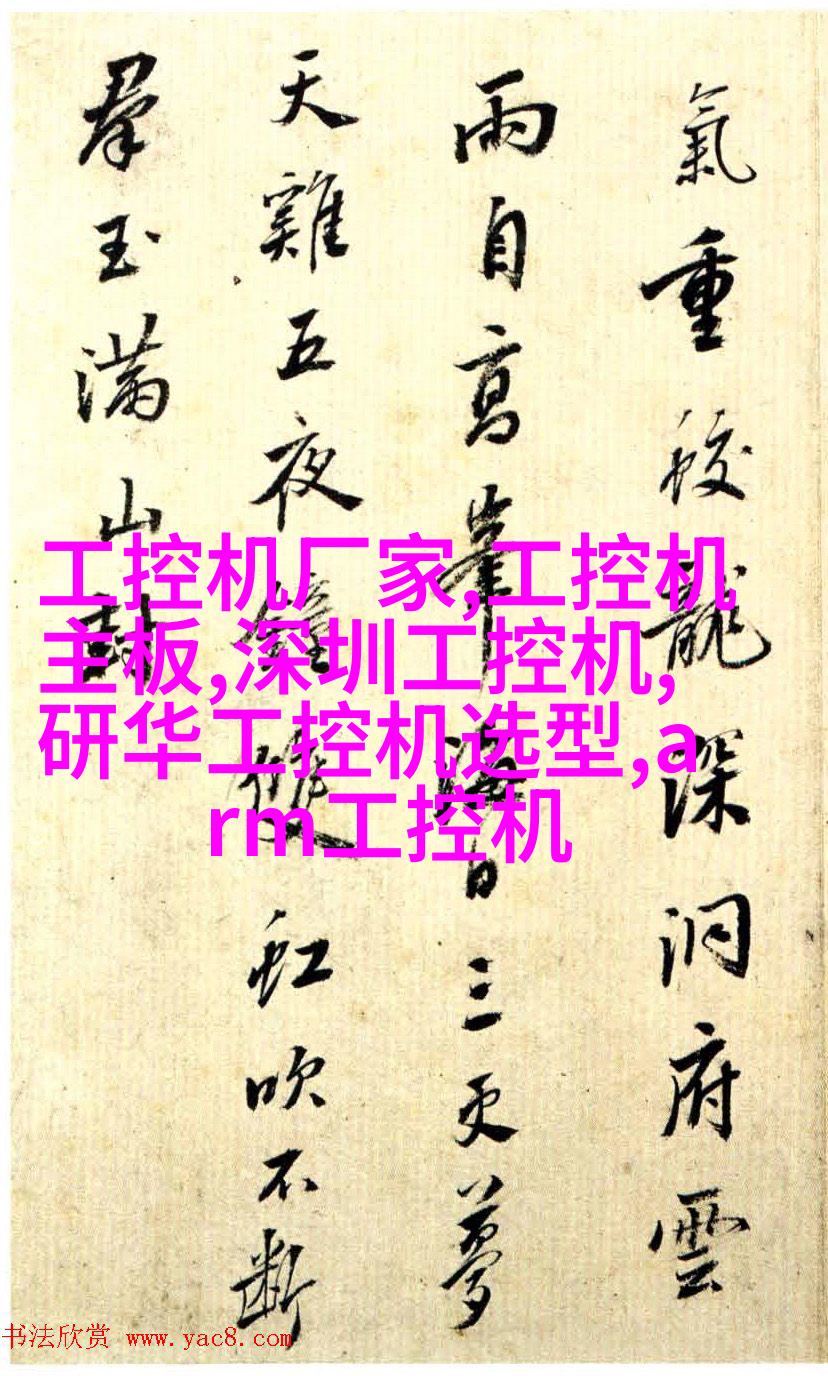 氣重蛟龍深洞府雲
雨自高峯海日三更夢
天雞五夜鐘雙虹吹不斷
羣玉滿山封
工控机厂家,工控机
主板,深圳工控机,
研华工控机选型,a
rm工控机
书法欣赏 www.yac8.com